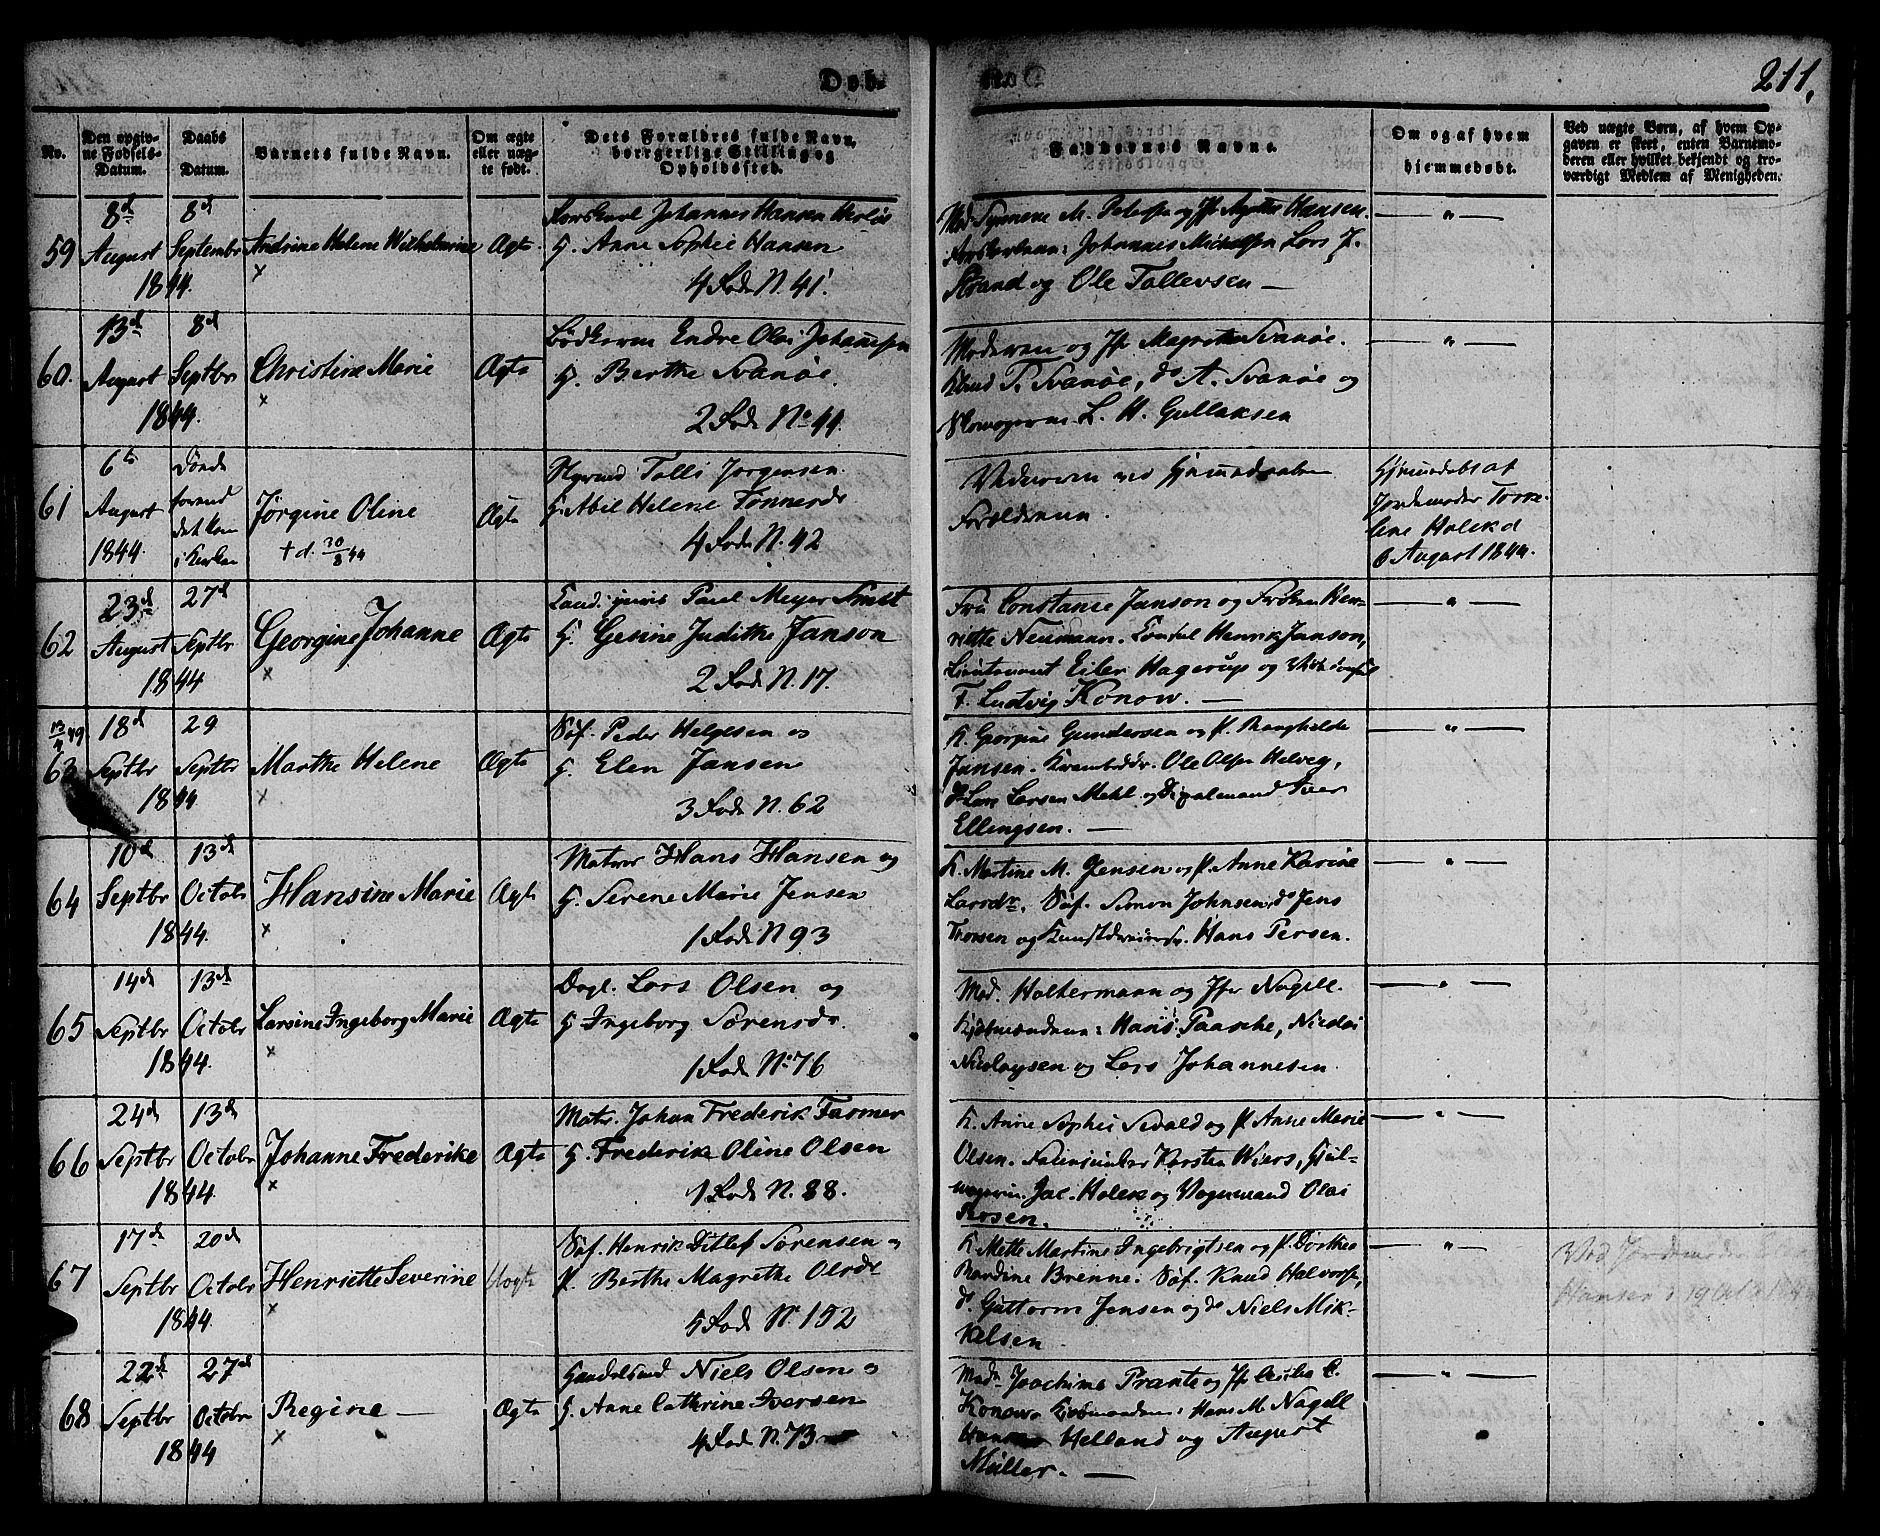 Døb-
211.
No.
Den opgiv-
ne Fødsels-
Datum.
Daabs
Datum.
Barnets fulde Navn.
Om ægte
eller uæg-
te født.
Dets Forældres fulde Navn,
borgerlige Stilling og
Opholdssted.
Faddernes Navne.
Om og af hvem
hjemmedøbt.
Ved uægte Børn, af hvem Op-
gaven er skeet, enten Barnemo-
deren eller hvilket bekjendt og tro-
værdigt Medlem af Menigheden.
59
8de August 1844.
8d September
Andrine Helene Wilhelmine
×
Ægte
Johannes Hansen
H. Anne Sophie Hansen
4 Fode N. 41.
Mad. M. Petersen og Jfr Hansen.
Johannes Lars J.
Strand og Ole Tollevsen —
— " —
60.
13de August 1844.
8d Septbr
Christine Marie
×
Ægte
Endre Olai Johannsen
H. Berthe Svanøe.
2 Fode No 44.
Moderen og Jfr Magrethe Svanøe.
Knud P. Svanøe, do A. Svanøe og
L. H. Gullaksen
— " —
61
6te August 1844.
Døde
forend
det kom
i Kirken
Jørgine Oline
+ d. 30/8 44
Ægte
Tolli Jørgensen.
H. Abel Helene Tønnesdr
4 Fode N. 42
Forældrene.
Hjemmedøbt af
Jordemoder Torre-
line Holck d
6 August 1844.
62
23de August 1844
27d Septbr
Georgine Johanne
×
Ægte
Cand. juris Paul Meyer Smit
H. Gesine Judithe Janson
2 Fode N. 17.
Fru Constance Janson og Frøken Hen-
riette Neumann. Consul Henrik Janson,
Lieutenant Eiler Hagerup og
F. Ludvig Konow. —
— " —
13/4 49
63
18d Septbr 1844
29 Septbr
Marthe Helene
×
Ægte
Søf. Peder Helgesen og
H. Elen Jansen
3 Fode N. 62
K. Gunders en og P. Ranghilde
Jansen. Ole Olsen Helveg,
Lars Larsen Mehl og Iver
Ellingsen. —
— " —
64
10de Septbr 1844.
13de Octobr
Hansine Marie
×
Ægte
Matros Hans Hansen og
H. Serene Marie Jensen
1 Fode N 93
K. Martine M. Jensen og P. Anne Karine
Larsdr. Søf. Simon Johnsen, do Jens
Thorsen og Hans Persen.
— " —
65
14de Septbr 1844.
13de Octobr
Larsine Ingeborg Marie
×
Ægte
Dagl. Lars Olsen og
H. Ingeborg Sørensdr.
1 Fode No 76
Mad. Holtermann og Jfr Nagell.
Kjøbmændene: Hans Paasche, Nicolai
Nicolaysen og Lars Johannesen
— " —
66
24de Septbr 1844.
13de Octobr
Johanne Frederike
×
Ægte
Matr. Johan Frederik Farmer
H. Frederike Oline Olsen
1 Fode N. 88.
K. Anne Sophie Sevald og P. Anne Marie
Olsen. Karsten Wiers,
Jac. Holck og Vognmand Olai
Persen.
— " —
67
17de Septbr 1844
20de Octobr
Henriette Severine
×
Uægte
Søf. Henrik Ditlef Sørensen og
P. Berthe Magrethe Olsdr
5 Fode No 152
K. Mette Martine Ingebrigtsen og P. Dorthea
Brenne. Søf. Knud Halvorsen,
do Guttorm Jensen og do Niels Mik-
kelsen
— " —
Ved Jordemoder
Hansen
68
22de Septbr 1844
27de Octobr
Regine —
×
Ægte
Niels Olsen og
H. Anne Cathrine Iversen
4 Fode N. 73
Madm Joachime Prante og Jfr C.
Konow Kjøbmændene: Hans M. Nagell
Helland og August
Müller. —
— " —